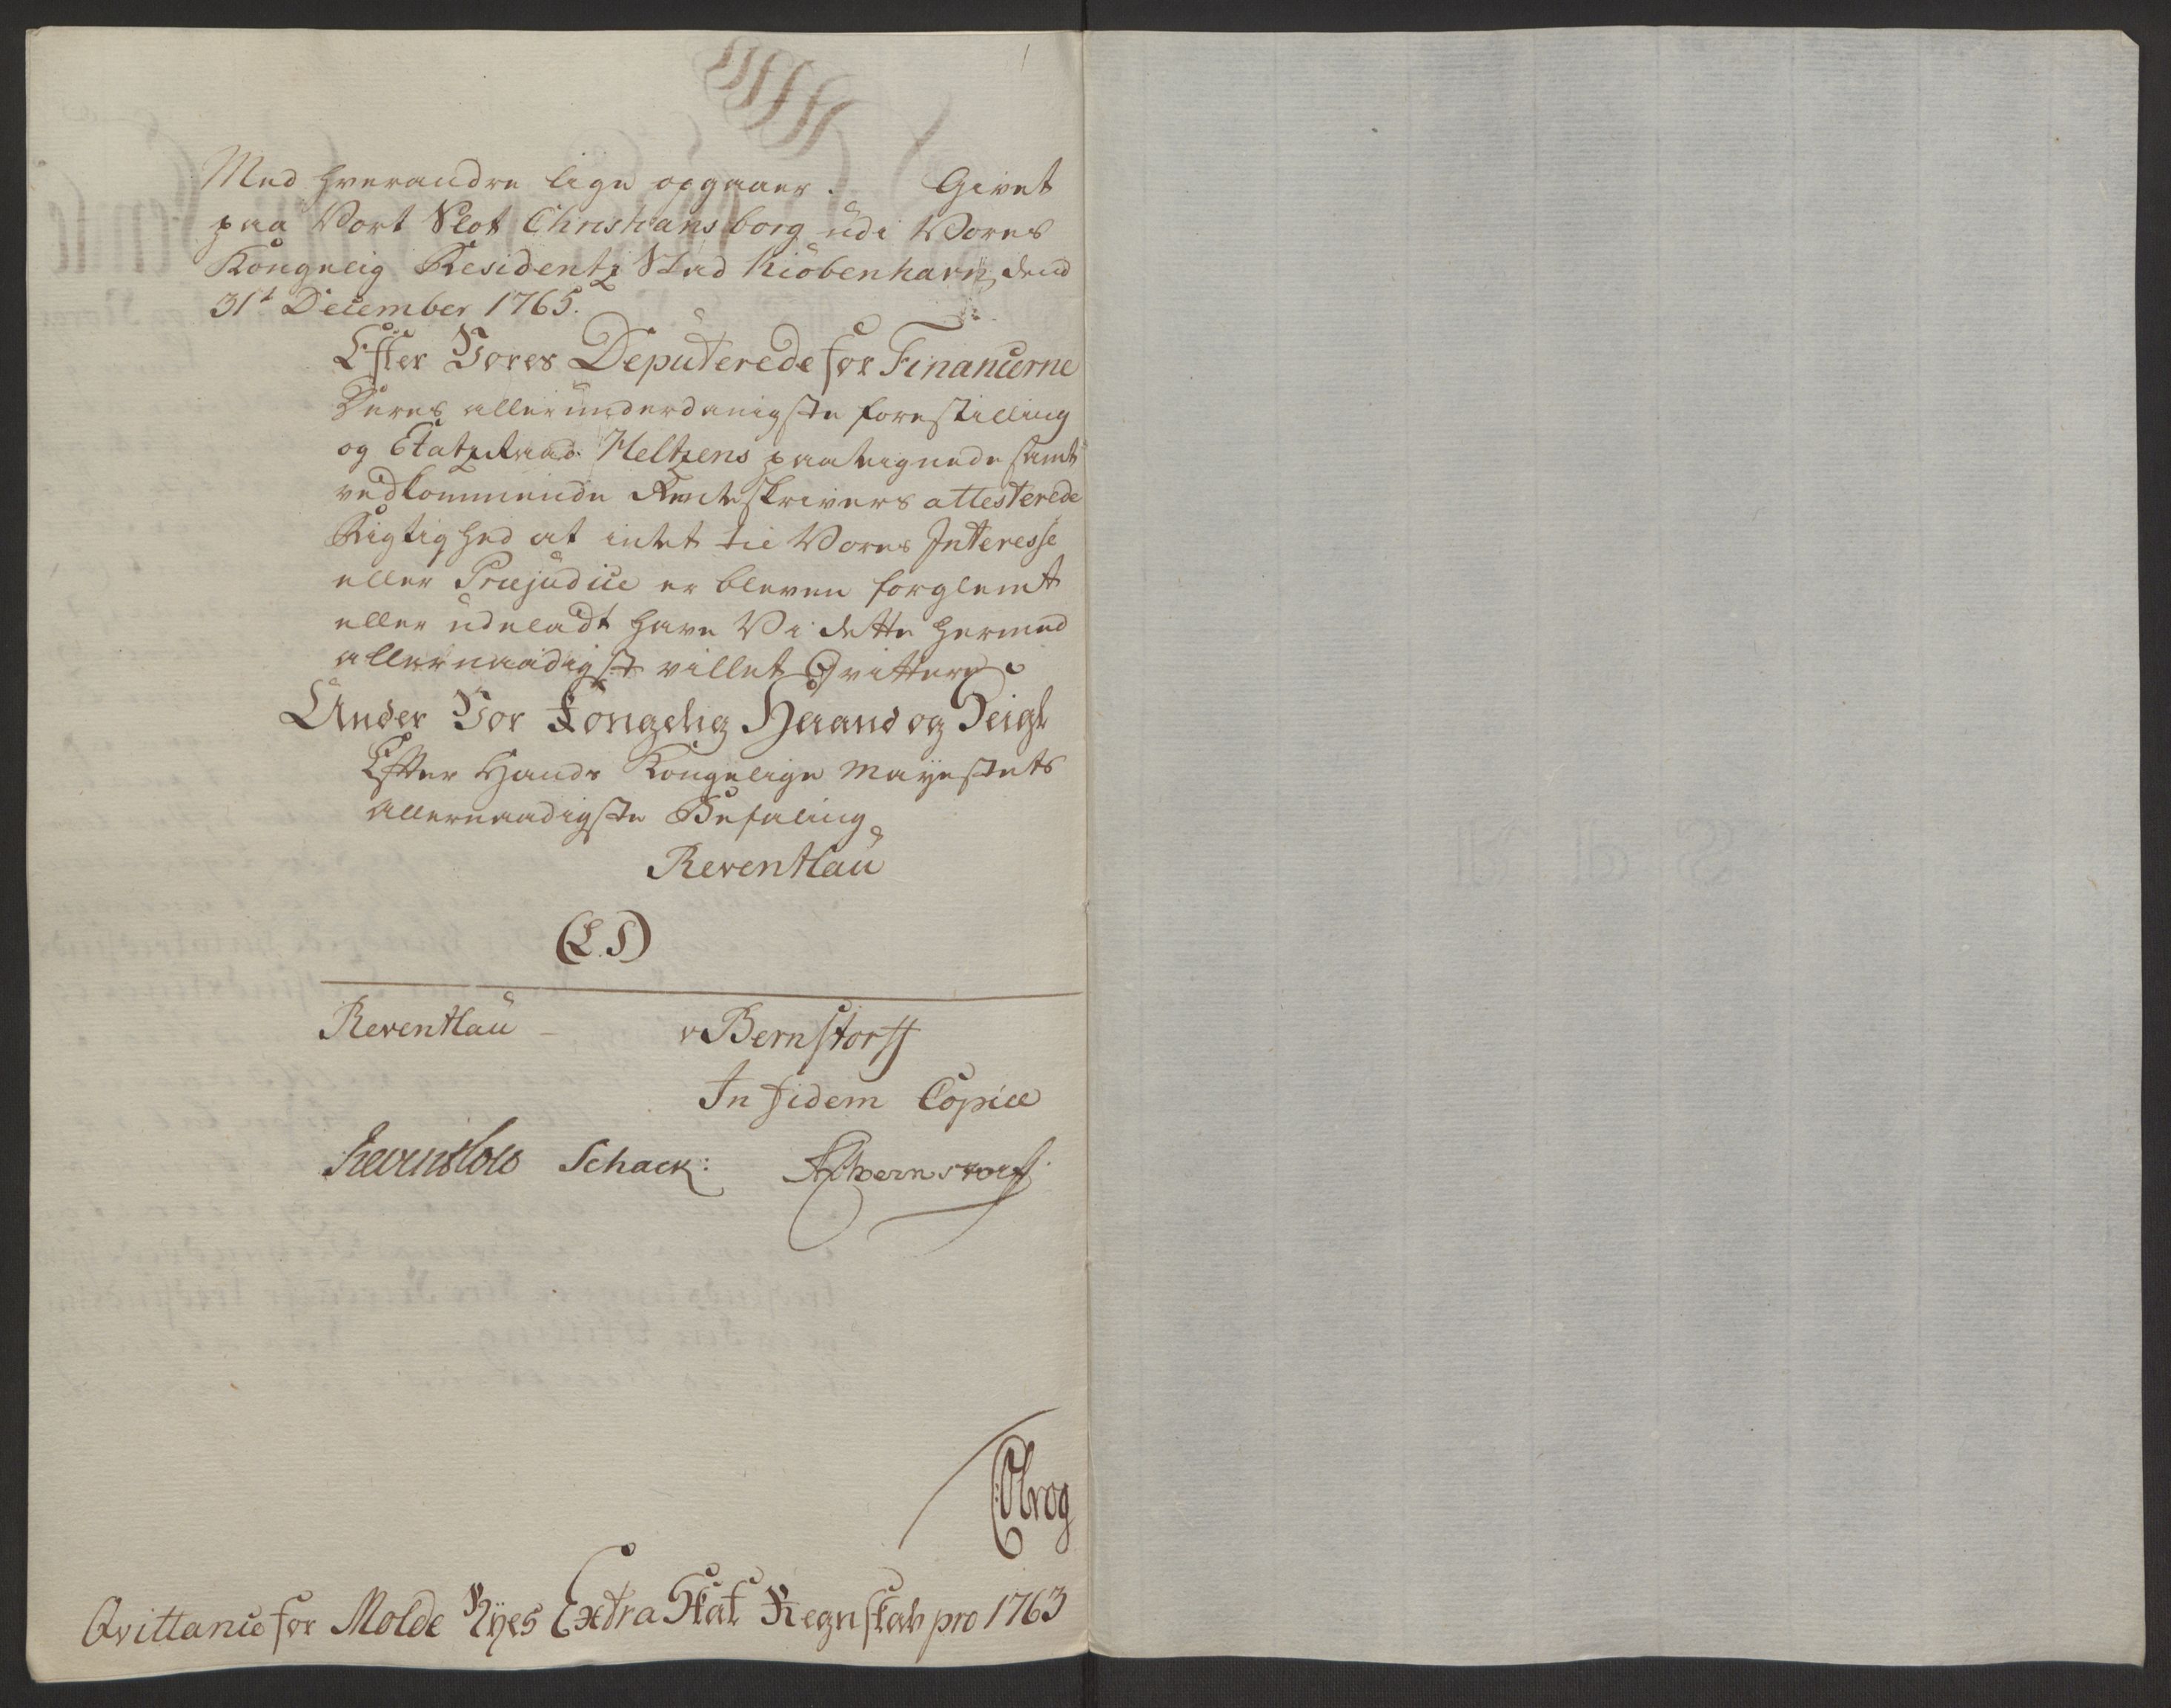 Med hverandre lige opgaaer. Givet
paa Vort Slot Christiansborg udi Vores
Kongelig Residentz Stad Kiöbenhavn, dend
31t December 1765.
Efter Vores Deputerede for Financerne
Deres allerunderdanigste forestilling
og Etatz Raad Heltzens paategnede samt
vedkommende Renteskrivers attesterede
Rigtighed at intet til Vores Interesse
eller Præjudice er bleven forglemt
eller udeladt have Vi dette hermed
allernaadigst villet Qvittere
Under Vor Kongelig Haand og Seigl
Efter Hands Kongelige Mayestets
Allernaadigste Befaling
Reventlau
(L.S)
Reventlau - v Bernstorff
In fidem Copiæ
Reventlow Schack: Bernstorff
Qvittance for Molde Byes Extra Skat Regnskab pro 1763